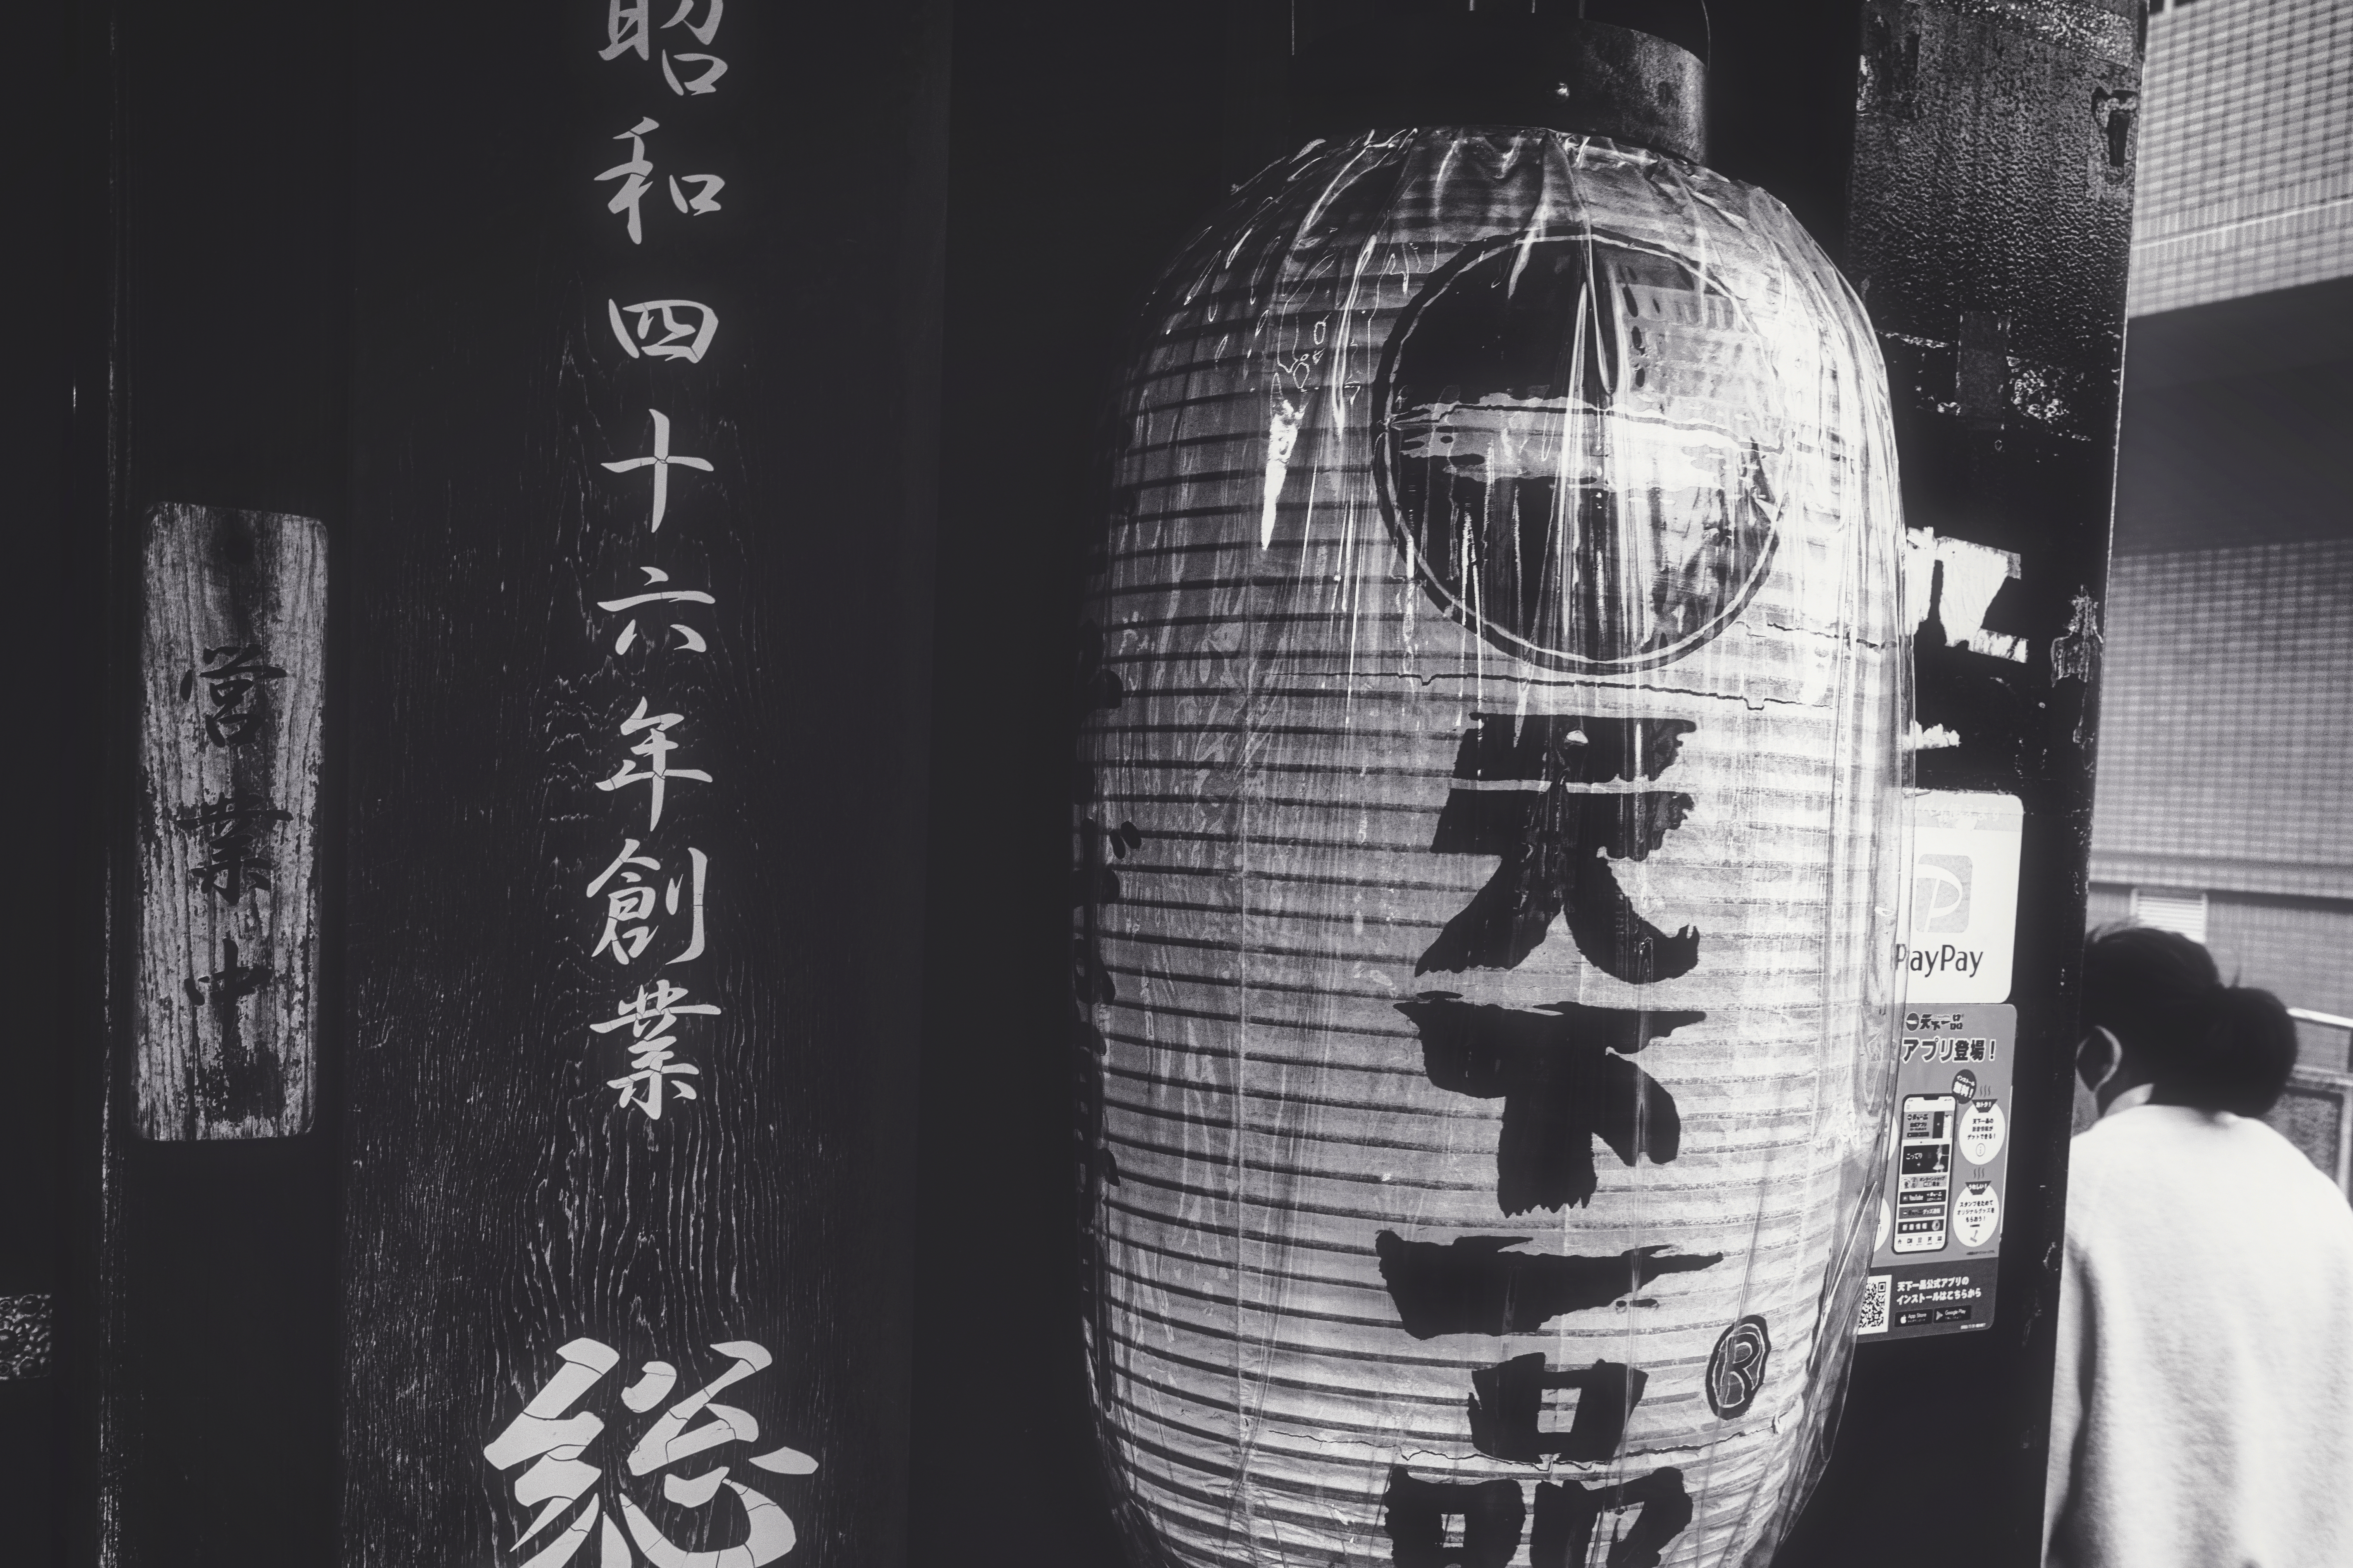 営業中
昭和四十六年創業
総
天下一品
®
PayPay
天下一品
アプリ登場！
無料！
こってり
天下一品公式アプリの
インストールはこちらから
App Store
Google Play